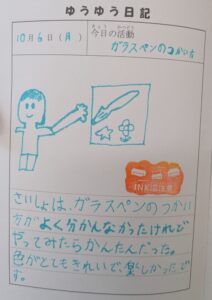 ゆうゆう日記
10月6日(月)
きょう かつどう
今日の活動
ガラスペンのつかい方
INK瓶注意
さいしょは、ガラスペンのつかい
方がよく分かんなかったけれど
やってみたらかんたんだった。
色がとてもきれいで、楽しかったで
す。